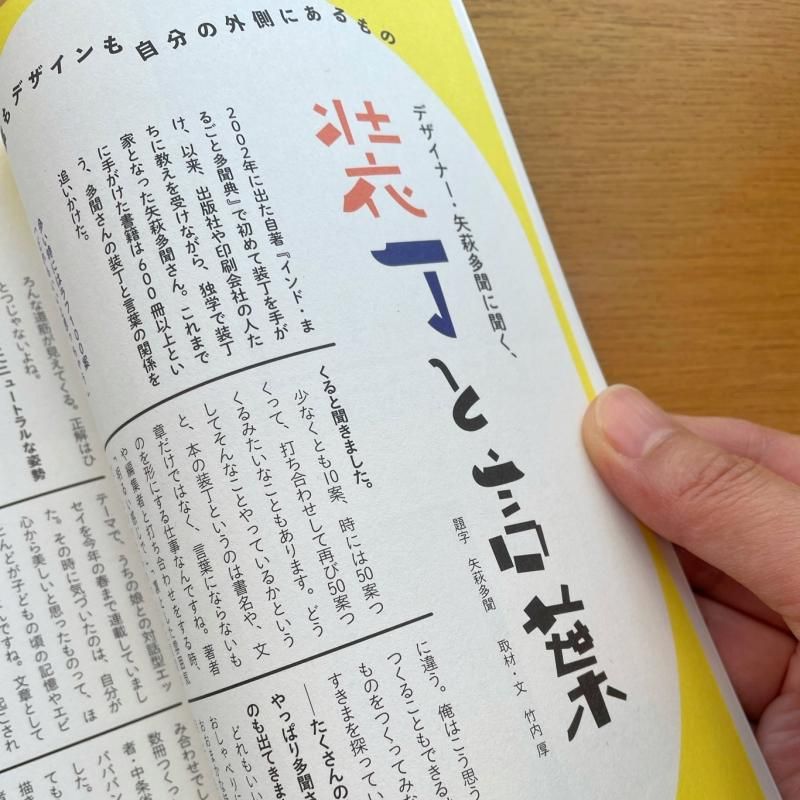 デザインも自分の外側にあるもの
デザイナー・矢萩多聞に聞く、
装丁と言葉
題字 矢萩多聞 取材・文 竹内厚
2002年に出た自著『インド・ま
るごと多聞典』で初めて装丁を手が
け、以来、出版社や印刷会社の人た
ちに教えを受けながら、独学で装丁
家となった矢萩多聞さん。これまで
に手がけた書籍は600冊以上とい
う、多聞さんの装丁と言葉の関係を
追いかけた。
くると聞きました。
少なくとも10案、時には50案つ
くって、打ち合わせして再び50案つ
くるみたいなこともあります。どう
してそんなことやっているかという
と、本の装丁というのは書名や、文
章だけではなく、言葉にならないも
のを形にする仕事なんですね。著者
や編集者と打ち合わせをする時、
に違う。俺はこう思う
つくることもできる
ものをつくってみな
すきまを探ってい
――たくさんの
やっぱり多聞さ
のも出てきま
どれもいい
おしゃべりに
ろんな道筋が見えてくる。正解はひ
とつじゃないよね。
ニュートラルな姿勢
テーマで、うちの娘との対話型エッ
セイを今年の春まで連載していまし
た。その時に気づいたのは、自分が
心から美しいと思ったものって、ほ
とんどが子どもの頃の記憶やエピ
んですね。文章として
起こされ
み合わせでし
数冊つくっ
者・中条省
パパパン
した。
ても
描き